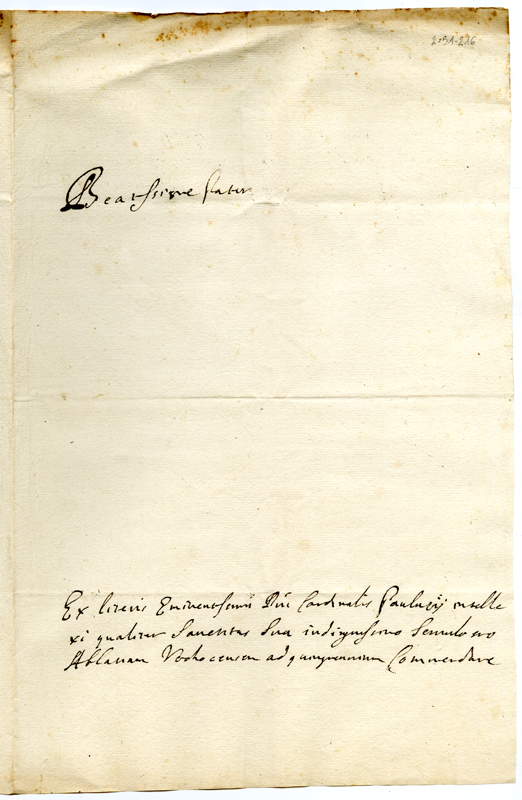 2-51-216
Beatissime Pater
Ex literis Eminentissimi Dni Cardinalis Paulutij intelle
xi qualiter Sanctitas Sua indignissimo Servulo suo
Abbatiam ad quinquennium Commendare